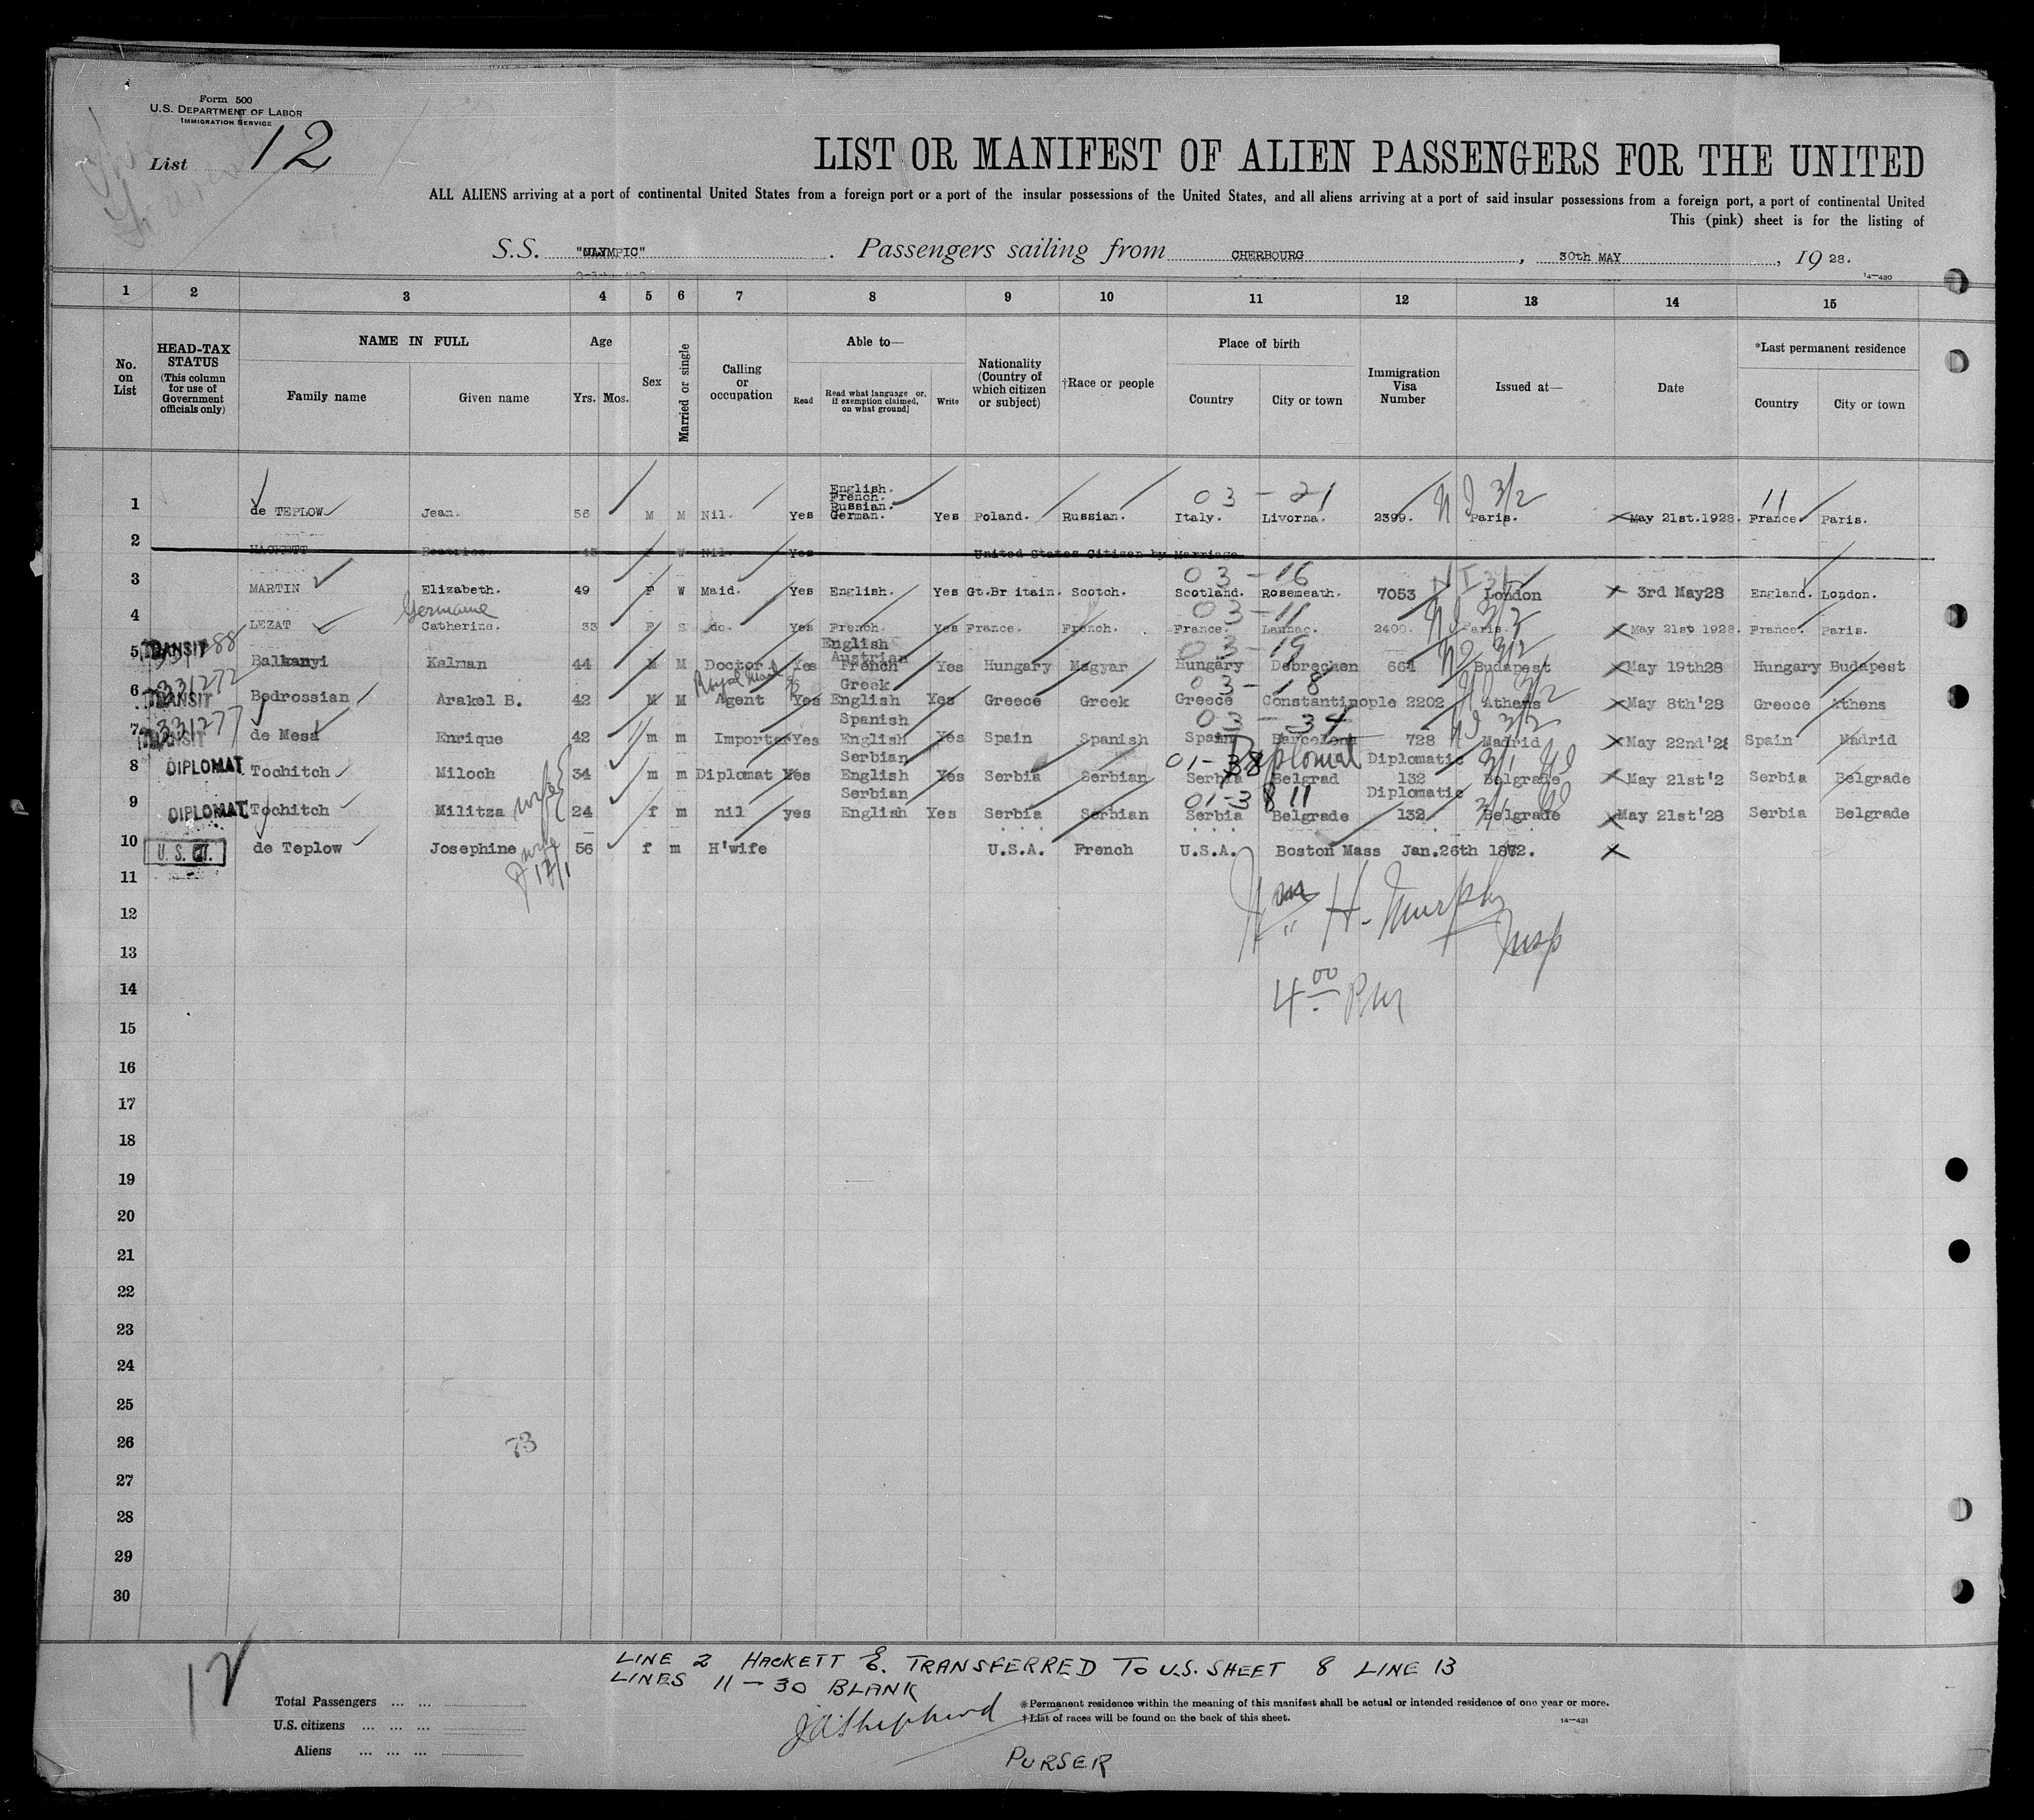 Form 500
U.S. DEPARTMENT OF LABOR
IMMIGRATION SERVICE
List 12
LIST OR MANIFEST OF ALIEN PASSENGERS FOR THE UNITED
ALL ALIENS arriving at a port of continental United States from a foreign port or a port of the insular possessions of the United States, and all aliens arriving at a port of said insular possessions from a foreign port, a port of continental United
This (pink) sheet is for the listing of
S.S. "OLYMPIC". Passengers sailing from CHERBOURG, 30th MAY, 1928.
14-430
1 2 3 4 5 6 7 8 9 10 11 12 13 14 15
No. on List
HEAD-TAX STATUS (This column for use of Government officials only)
NAME IN FULL
Family name Given name
Age
Yrs. Mos.
Sex
Married or single
Calling or occupation
Able to—
Read
Read what language or, if exemption claimed, on what ground]
Write
Nationality (Country of which citizen or subject)
†Race or people
Place of birth
Country City or town
Immigration Visa Number
Issued at—
Date
*Last permanent residence
Country City or town
03 - 21 NI 3/2 11
1 de TEPLOW Jean. 56 M M Nil. Yes English. French. Russian. German. Yes Poland. Russian. Italy. Livorna. 2399. Paris. May 21st.1928. France. Paris.
2 HACKETT Beatrice. 45 F W Nil. Yes United States Citizen by Marriage
03 - 16
3 MARTIN Elizabeth. 49 F W Maid. Yes English. Yes Gt.Britain. Scotch. Scotland. Rosemeath. 7053 London 3rd May28 England. London.
Germaine 03 - 11 NI 3/2
4 LEZAT Catherine. 33 F S do. Yes French. Yes France. French. France. Launac. 2400. Paris. May 21st 1928. France. Paris.
03 - 19 NI 3/2
5 TRANSIT Balkanyi Kalman 44 M M Doctor Yes English Austrian French Yes Hungary Magyar Hungary Debrechen 664 Budapest May 19th28 Hungary Budapest
331272 Royal Mail 03 - 18 NI 3/2
6 TRANSIT Bedrossian Arakel B. 42 M M Agent Yes Greek English Yes Greece Greek Greece Constantinople 2202 Athens May 8th'28 Greece Athens
331277 03 - 34 NI 3/2
7 TRANSIT de Mesa Enrique 42 m m Importer Yes Spanish English Yes Spain Spanish Spain Barcelona 728 Madrid May 22nd'28 Spain Madrid
01-38 Diplomat 3/1
8 DIPLOMAT Tochitch Miloch 34 m m Diplomat Yes Serbian English Yes Serbia Serbian Serbia Belgrad Diplomatic 132 Belgrade May 21st'2 Serbia Belgrade
wife 01-38 11 3/1
9 DIPLOMAT Tochitch Militza 24 f m nil yes Serbian English Yes Serbia Serbian Serbia Belgrade Diplomatic 132 Belgrade May 21st'28 Serbia Belgrade
10 U.S. CIT. de Teplow Josephine 56 f m H'wife U.S.A. French U.S.A. Boston Mass Jan.26th 1872.
wife
12/1
11
Wm H. Murphy
12
Insp
13
4 00 PM
14
15
16
17
18
19
20
21
22
23
24
25
26
73
27
28
29
30
LINE 2 HACKETT E. TRANSFERRED TO U.S. SHEET 8 LINE 13
LINES 11-30 BLANK
12
Total Passengers ... ...
U.S. citizens ... ... ...
Aliens ... ... ...
JA Shepherd
PURSER
*Permanent residence within the meaning of this manifest shall be actual or intended residence of one year or more.
†List of races will be found on the back of this sheet.
14-431